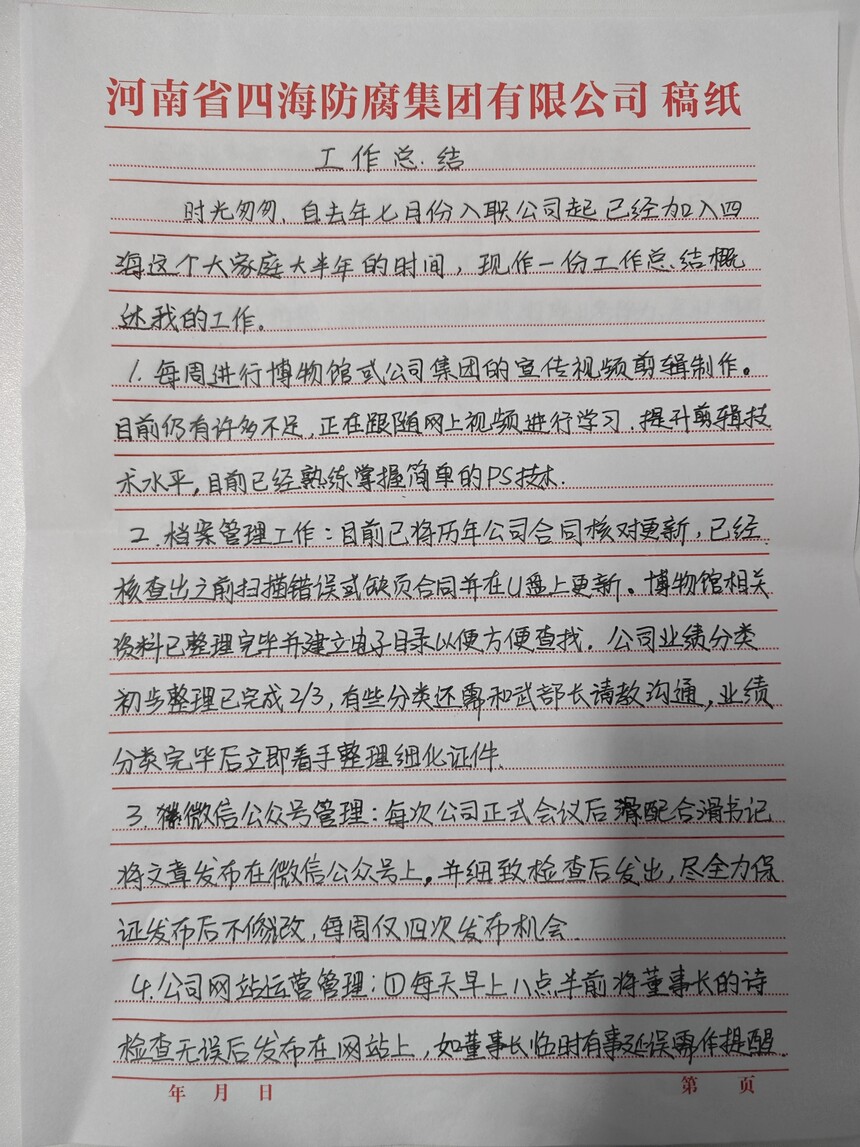 河南省四海防腐集团有限公司 稿纸
工作总结
时光匆匆、自去年七月份入职公司起已经加入四
海这个大家庭大半年的时间，现作一份工作总结概
述我的工作。
1. 每周进行博物馆或公司集团的宣传视频剪辑制作。
目前仍有许多不足，正在跟随网上视频进行学习．提升剪辑技
术水平，目前已经熟练掌握简单的PS技术．
2．档案管理工作：目前已将历年公司合同核对更新，已经
核查出之前扫描错误或缺页合同并在U盘上更新。博物馆相关
资料已整理完毕并建立电子目录以便方便查找．公司业绩分类
初步整理已完成2/3，有些分类还需和武部长请教沟通，业绩
分类完毕后立即着手整理细化证件．
3．微信公众号管理：每次公司正式会议后配合滑书记
将文章发布在微信公众号上，并细致检查后发出，尽全力保
证发布后不修改，每周仅四次发布机会．
4．公司网站运营管理：①每天早上八点半前将董事长的诗
检查无误后发布在网站上，如董事长临时有事延误需作提醒．
年 月 日 第 页